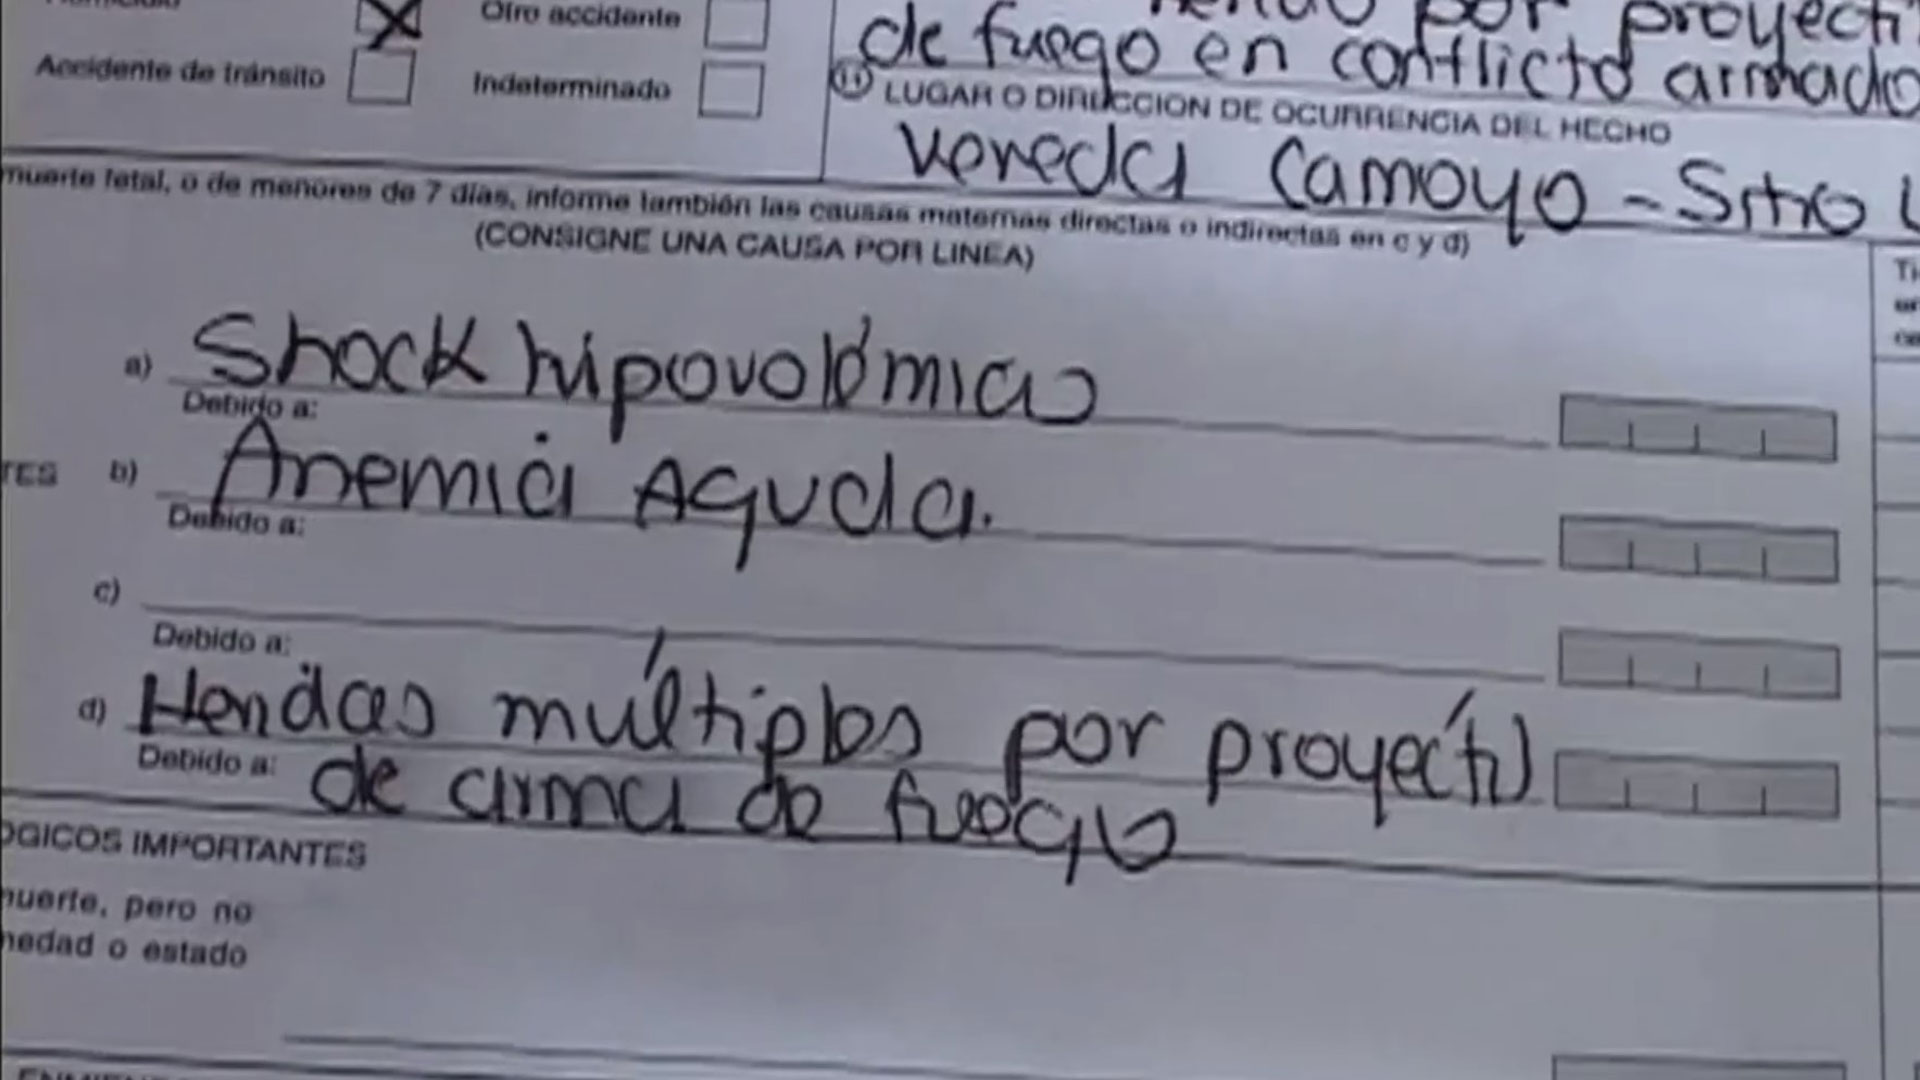 Otro accidente
por proyecti
de fuego en conflicto armado
Accidente de tránsito
Indeterminado
11 LUGAR O DIRECCION DE OCURRENCIA DEL HECHO
Vereda Camoyo - Sitio
muerte fetal, o de menores de 7 días, informe también las causas maternas directas o indirectas en c y d)
(CONSIGNE UNA CAUSA POR LINEA)
a) Shock hipovolémico
Debido a:
TES b) Anemia Aguda.
Debido a:
c)
Debido a:
d) Heridas múltiples por proyectíl
Debido a: de arma de fuego
OGICOS IMPORTANTES
muerte, pero no
medad o estado